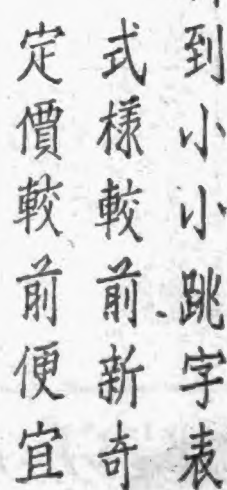 到小小跳字表
式樣較前新奇
定價較前便宜